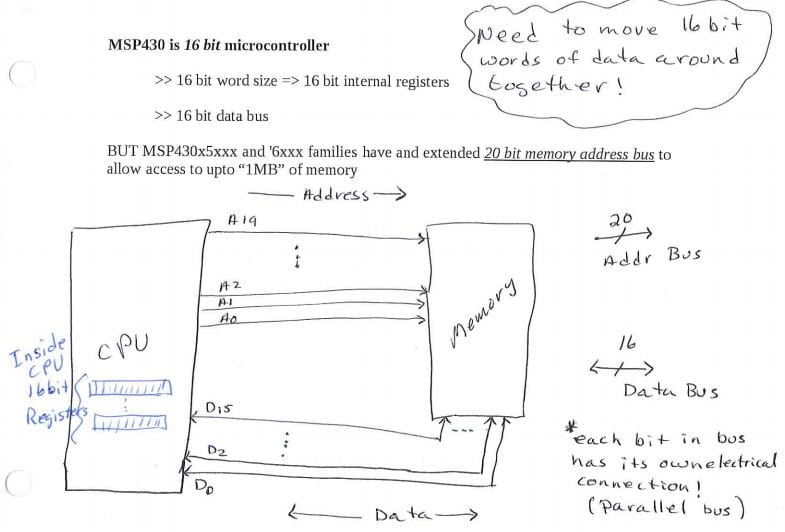 MSP430 is 16 bit microcontroller
>> 16 bit word size => 16 bit internal registers
>> 16 bit data bus
BUT MSP430x5xxx and '6xxx families have and extended 20 bit memory address bus to
allow access to upto “1MB” of memory
Need to move 16 bit
words of data around
together!
Address
A19
A2
A1
A0
CPU
Memory
Inside
CPU
16bit
Registers
D15
D2
D0
Data
20
Addr Bus
16
Data Bus
*each bit in bus
has its own electrical
connection!
(parallel bus)